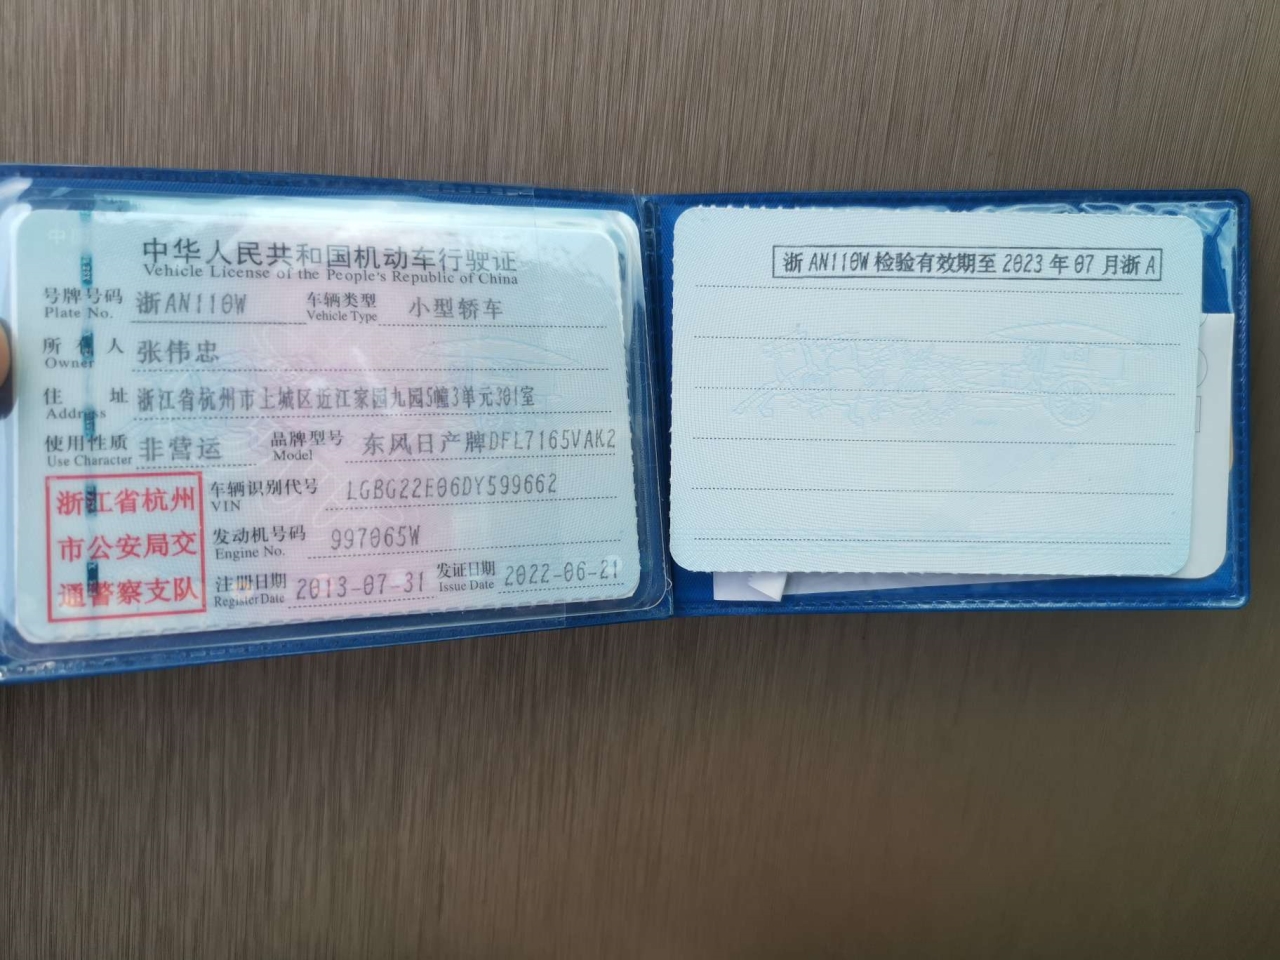 中华人民共和国机动车行驶证
Vehicle License of the People's Republic of China
号牌号码 浙AN110W 车辆类型 小型轿车
Plate No. Vehicle Type
所有人 张伟忠
Owner
住址 浙江省杭州市上城区近江家园九园5幢3单元301室
Address
使用性质 非营运 品牌型号 东风日产牌DFL7165VAK2
Use Character Model
浙江省杭州
市公安局交
通警察支队
车辆识别代号 LGBG22E06DY599662
VIN
发动机号码 997065W
Engine No.
注册日期 2013-07-31 发证日期 2022-06-21
Register Date Issue Date
浙AN110W检验有效期至2023年07月浙A